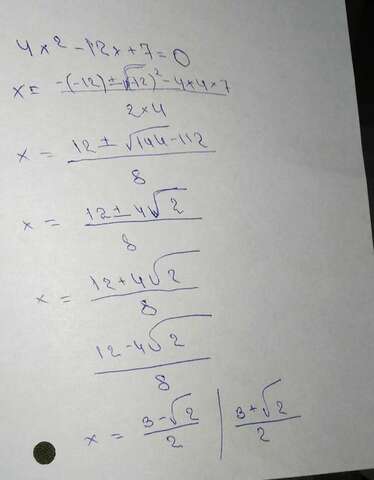 4x² - 12x + 7 = 0
x = -(-12) ± √(-12)² - 4×4×7 / 2×4
x = 12 ± √144 - 112 / 8
x = 12 ± 4√2 / 8
x = 12 + 4√2 / 8
12 - 4√2 / 8
x = 3 - √2 / 2 | 3 + √2 / 2